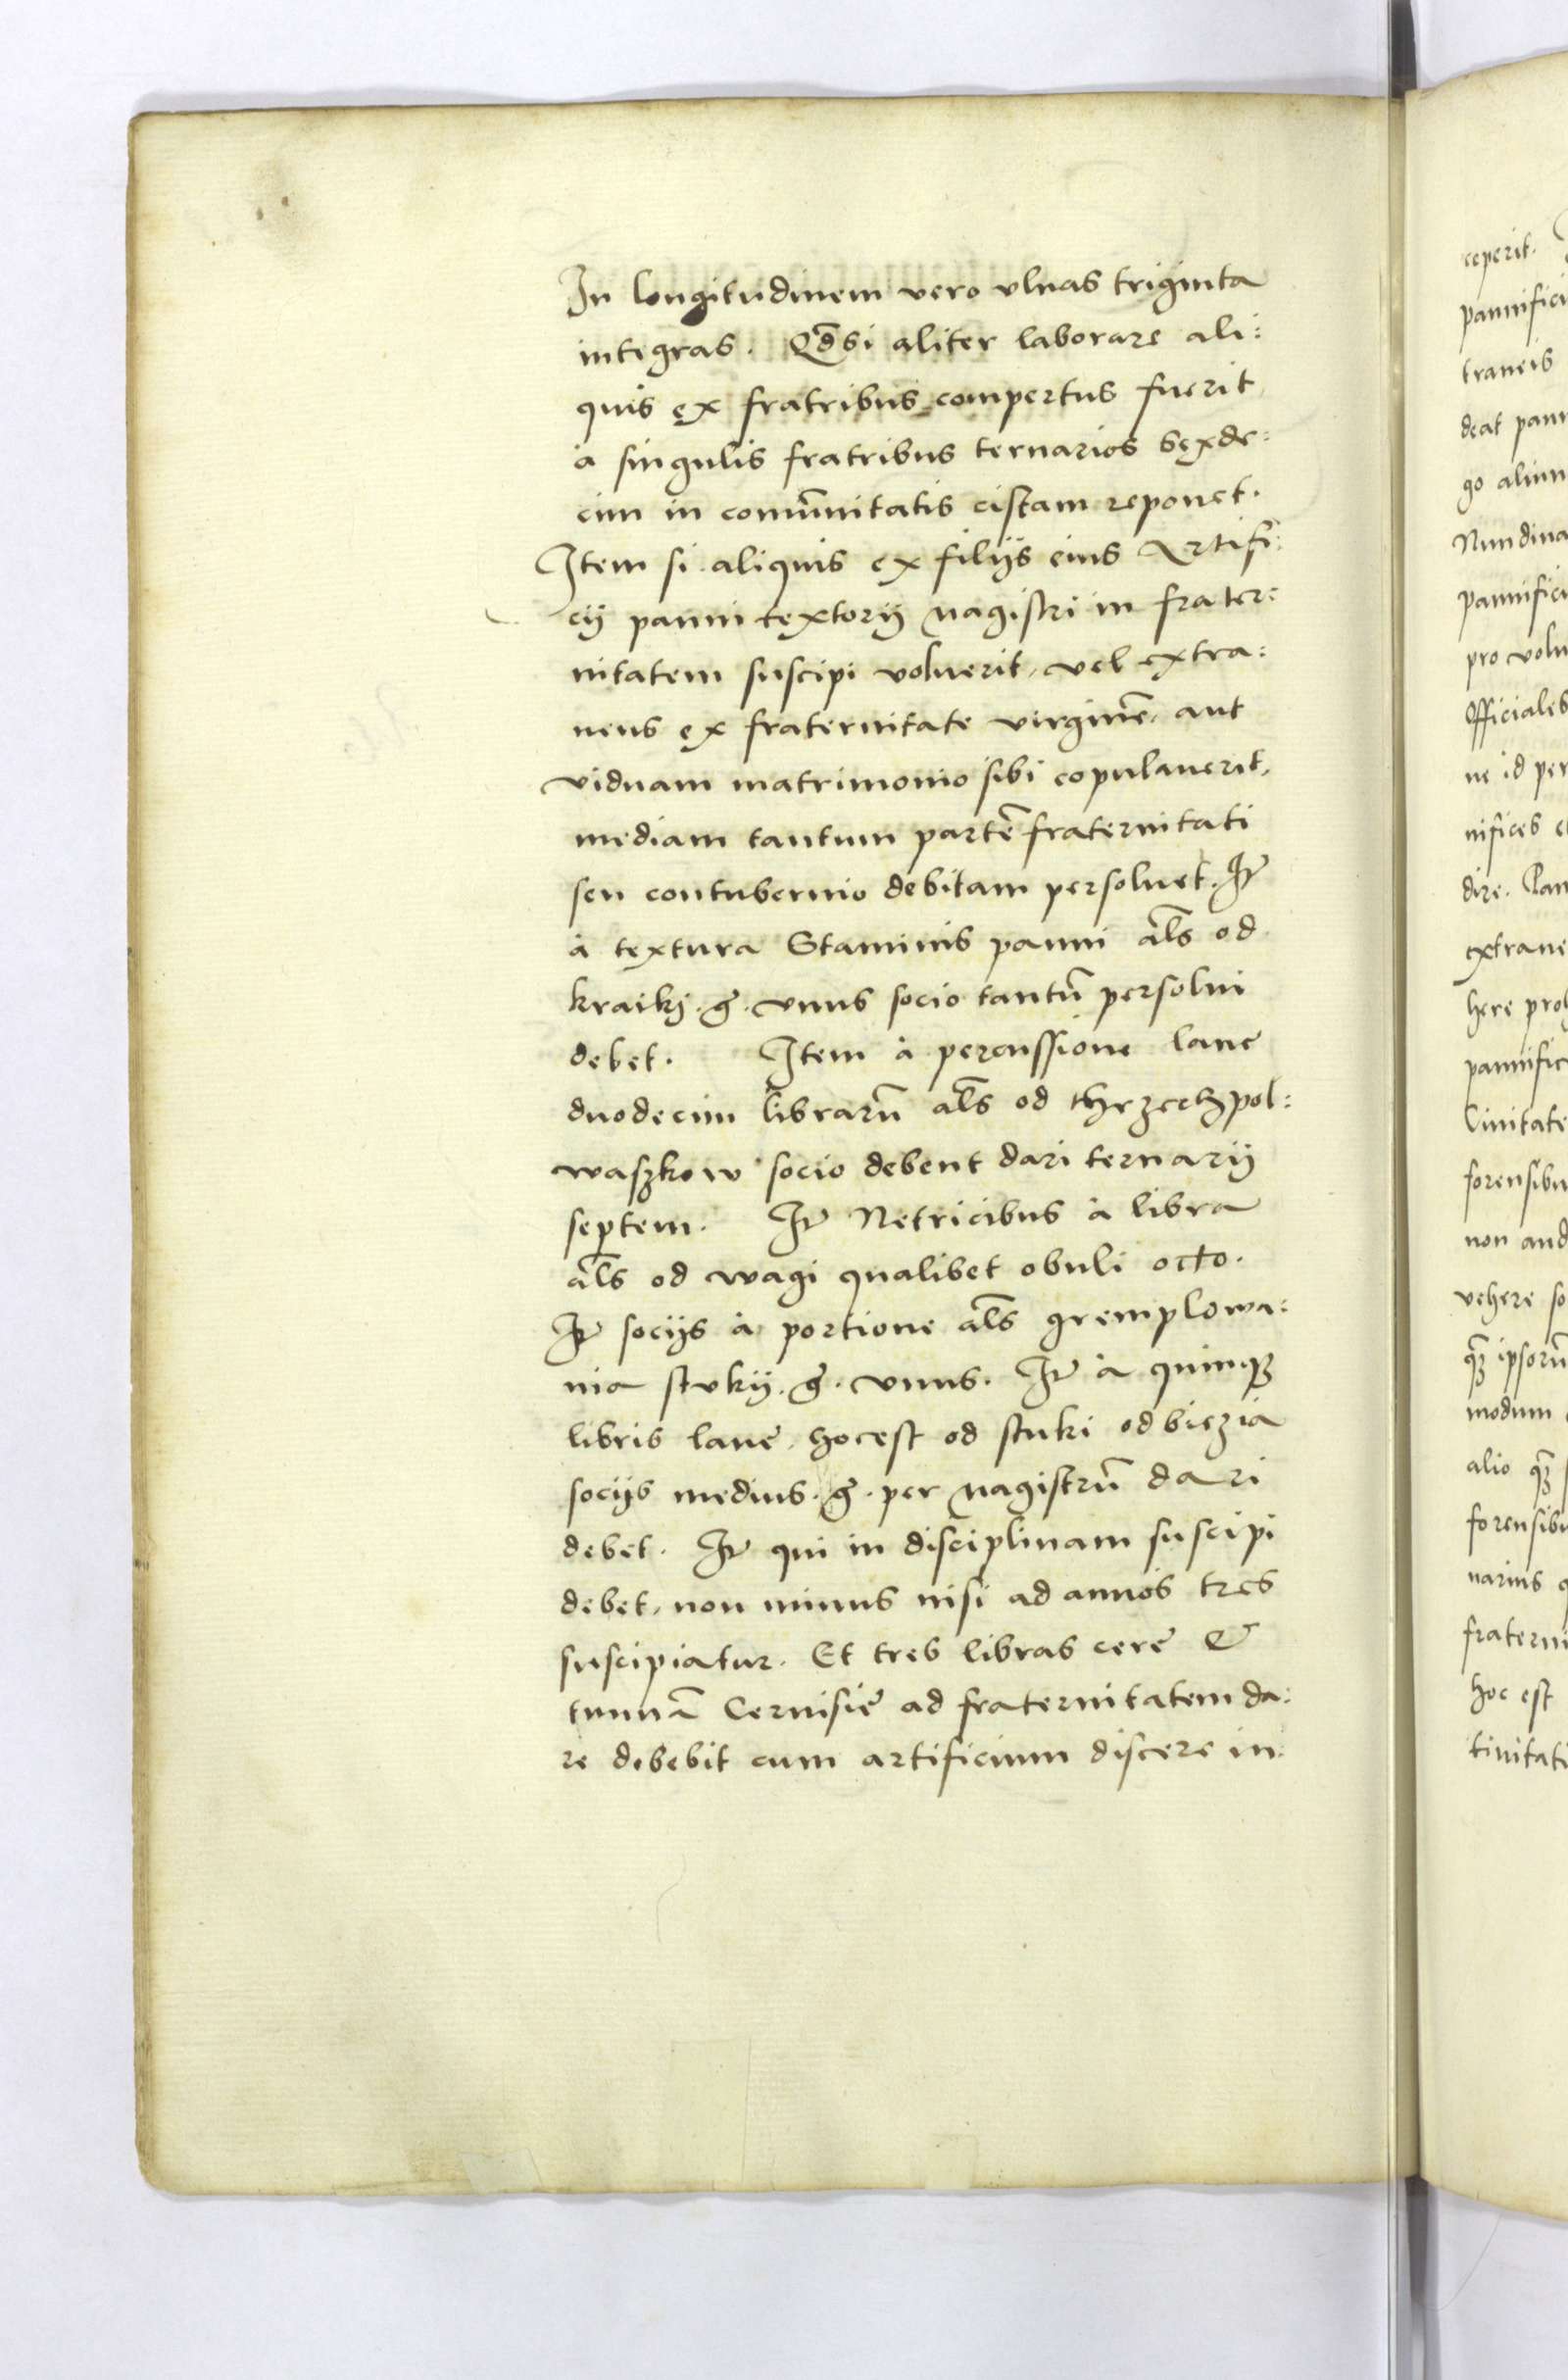 In longitudinem vero vlnas triginta
integras. Qd̄si aliter laborare ali:
quis ex fratribus compertus fuerit
à singulis fratribus ternarios sexde:
cim in comūnitatis cistam reponet.
Item si aliquis ex filijs eius Artifi:
cij panni textorij Magistri in frater:
nitatem suscipi voluerit, vel extra:
neus ex fraternitate virginē, aut
viduam matrimonio sibi copulauerit,
mediam tantum partē fraternitati
seu contubernio debitam persoluet. It̄
à textura Staminis panni al̄s od
kraiky. g̃. vnus socio tantū persolui
debet. Item à percussione lane
duodecim librarū al̄s od thrzechpol:
waszkow socio debent dari ternarij
septem. It̄ Netricibus à libra
al̄s od wagi qualibet obuli octo.
It̄ socijs à portione al̄s gremplowa:
nia stvkij. g̃. vnus. It̄ à quinqꝫ
libris lanę, hocest od stuki odbiczia
socijs medius. g̃. per Magistrū dari
debet. It̄ qui in disciplinam suscipi
debet, non minus nisi ad annos tres
suscipiatur. Et tres libras cerę &
tunnā Ceruisię ad fraternitatem da:
re debebit cum artificium discere in:
ceperit.
pannifici
traneis
deat pann
go alium
Nundina
pannifici
pro volu
Officiales
ne id per
nifices
dire.
extrane
here proh
pannific
Ciuitate
forensibu
non aud
vehere so
ipsorū
modum
alio
forensibu
narius
fraterni
hoc est
tiuitati